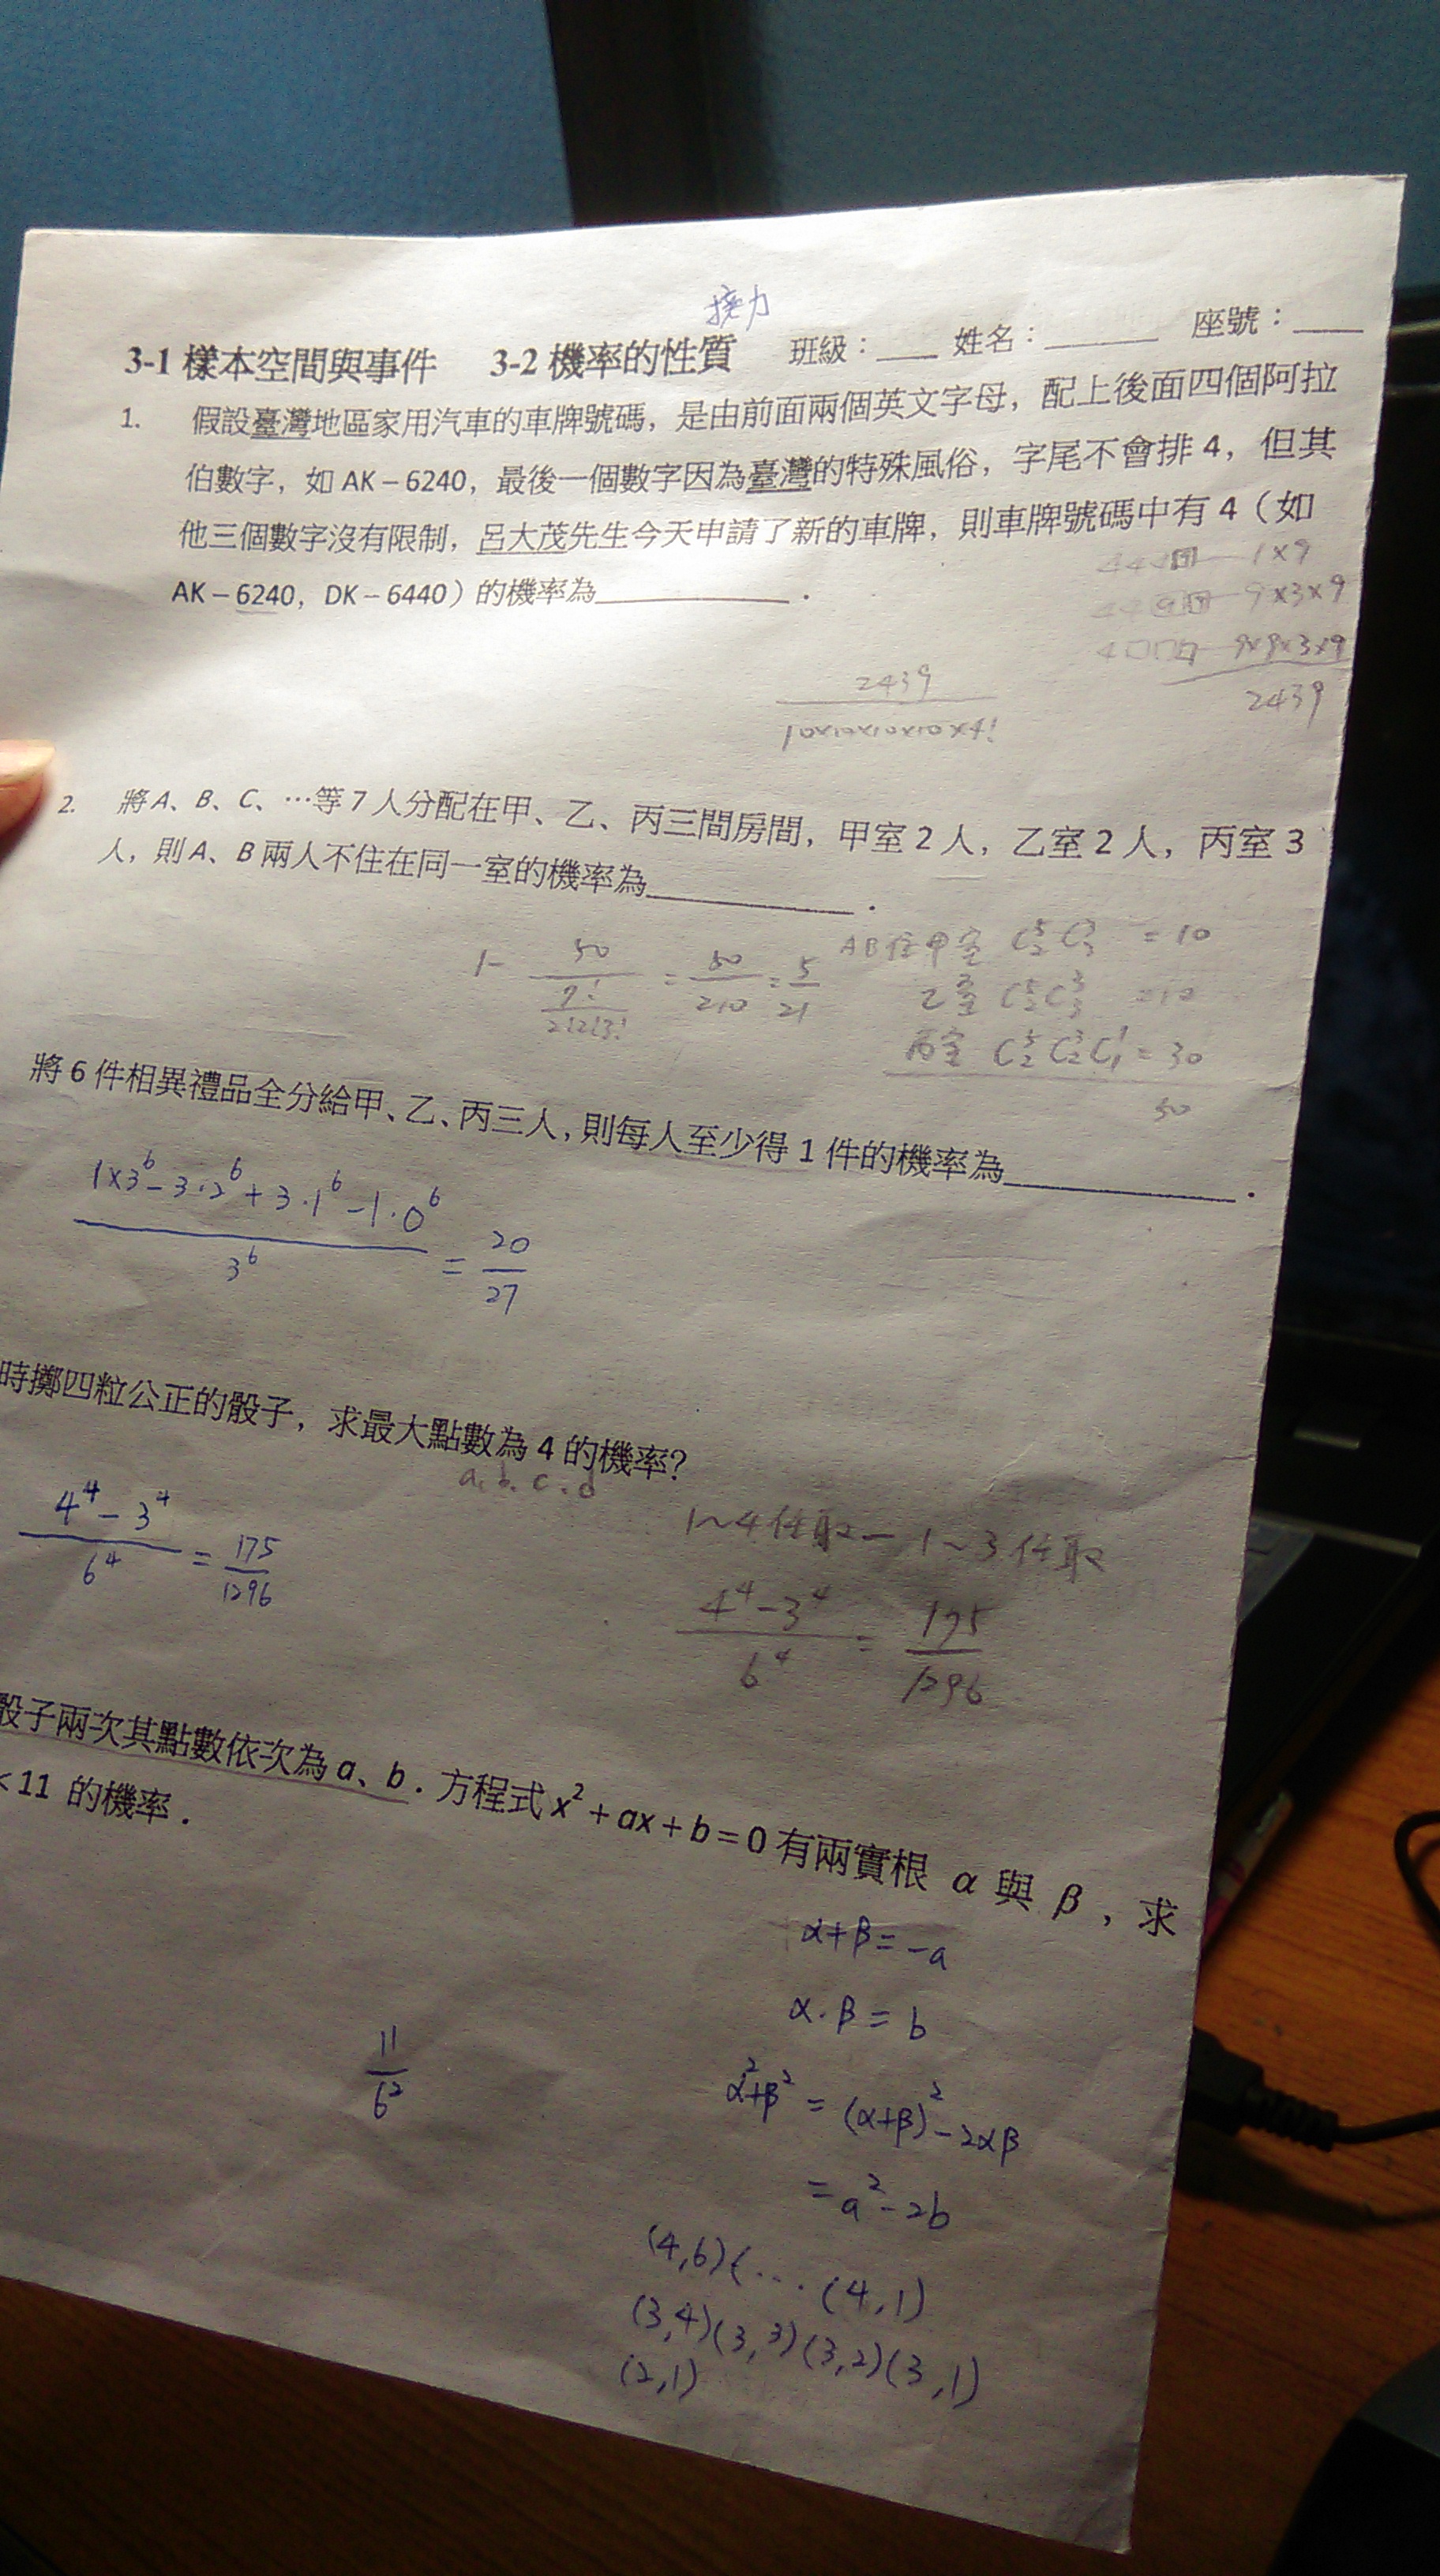 接力
3-1 樣本空間與事件 3-2 機率的性質 班級：___ 姓名：______ 座號：____
1. 假設臺灣地區家用汽車的車牌號碼，是由前面兩個英文字母，配上後面四個阿拉
伯數字，如 AK－6240，最後一個數字因為臺灣的特殊風俗，字尾不會排 4，但其
他三個數字沒有限制，呂大茂先生今天申請了新的車牌，則車牌號碼中有 4（如
AK－6240，DK－6440）的機率為__________．
1×9
9×3×9
9×9×3×9
2439
2439
10×10×10×10×4!
2. 將 A、B、C、…等 7 人分配在甲、乙、丙三間房間，甲室 2 人，乙室 2 人，丙室 3
人，則 A、B 兩人不住在同一室的機率為__________．
1- 50 / (7! / 2!2!3!) = 50/210 = 5/21
AB住甲室 C⁵₂C³₃ =10
乙室 C⁵₂C³₃ =10
丙室 C⁵₂C³₂C¹₁ = 30
50
將 6 件相異禮品全分給甲、乙、丙三人，則每人至少得 1 件的機率為__________．
(1×3⁶-3·2⁶+3·1⁶-1·0⁶) / 3⁶ = 20/27
時擲四粒公正的骰子，求最大點數為 4 的機率？
a.b.c.d
(4⁴-3⁴) / 6⁴ = 175/1296
1~4任取－1~3任取
(4⁴-3⁴) / 6⁴ = 175/1296
骰子兩次其點數依次為 a、b．方程式 x²+ax+b=0 有兩實根 α 與 β，求
<11 的機率．
α+β=-a
α·β=b
11/6²
α²+β²=(α+β)²-2αβ
=a²-2b
(4,6)(…(4,1)
(3,4)(3,3)(3,2)(3,1)
(2,1)